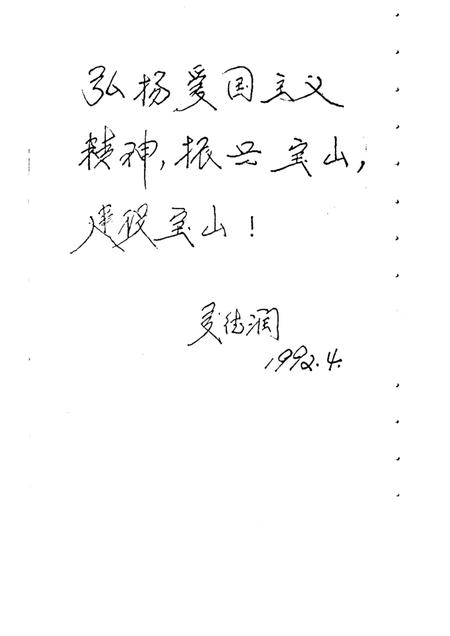 弘扬爱国主义
精神，振兴宝山，
建设宝山！
夏德润
1992.4.